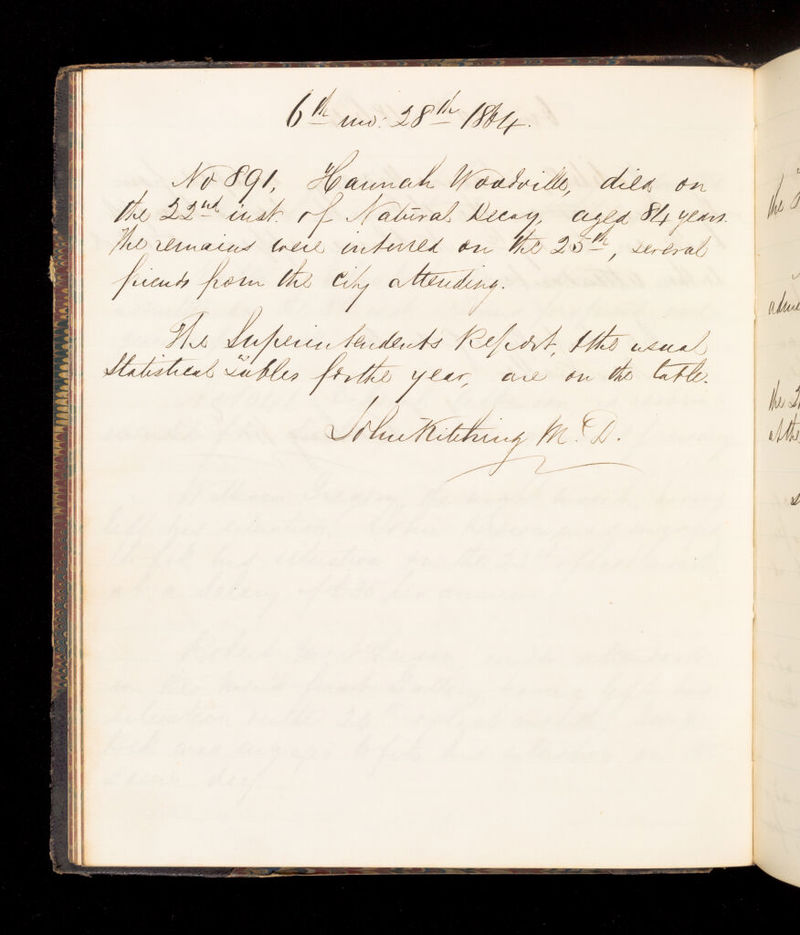 6th mo: 28th 1864.
No 891, Hannah Woodville, died on
the 22nd inst. of Natural Decay, aged 84 years.
The remains were interred on the 25th, several
friends from the city attending.
The Superintendents Report, & the usual
Statistical Tables for the year, are on the table.
John Kitching M.D.
the